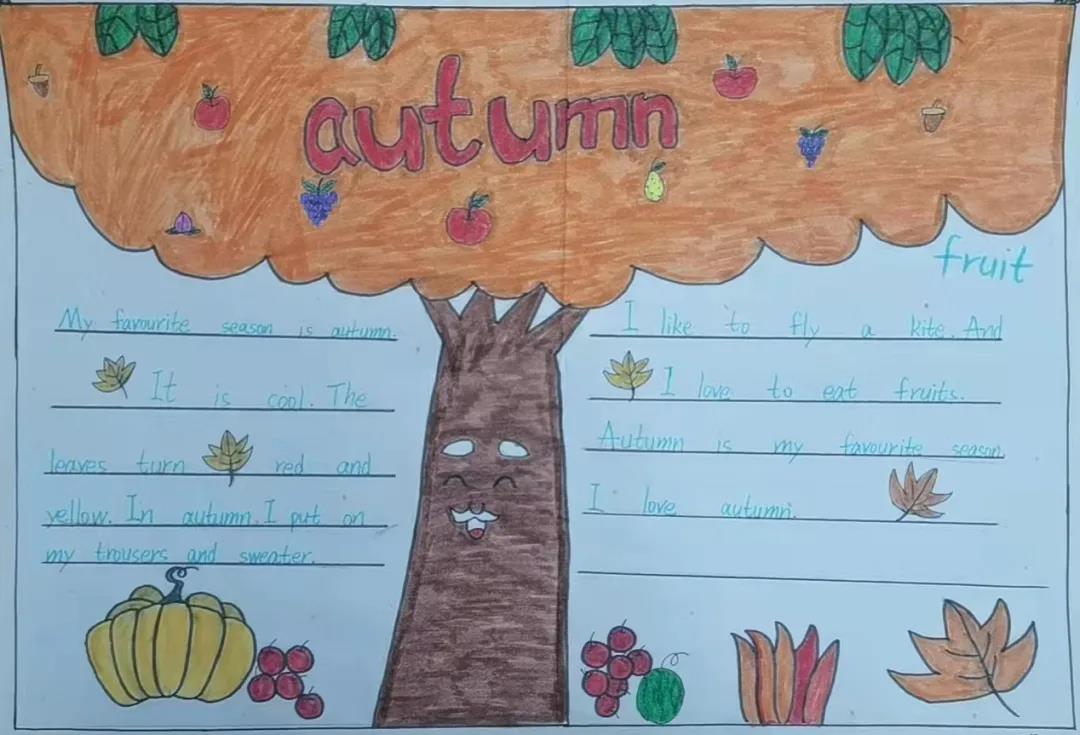 autumn
fruit
My favourite season is autumn.
It is cool. The
leaves turn red and
yellow. In autumn, I put on
my trousers and sweater.
I like to fly a kite. And
I love to eat fruits.
Autumn is my favourite season.
I love autumn.